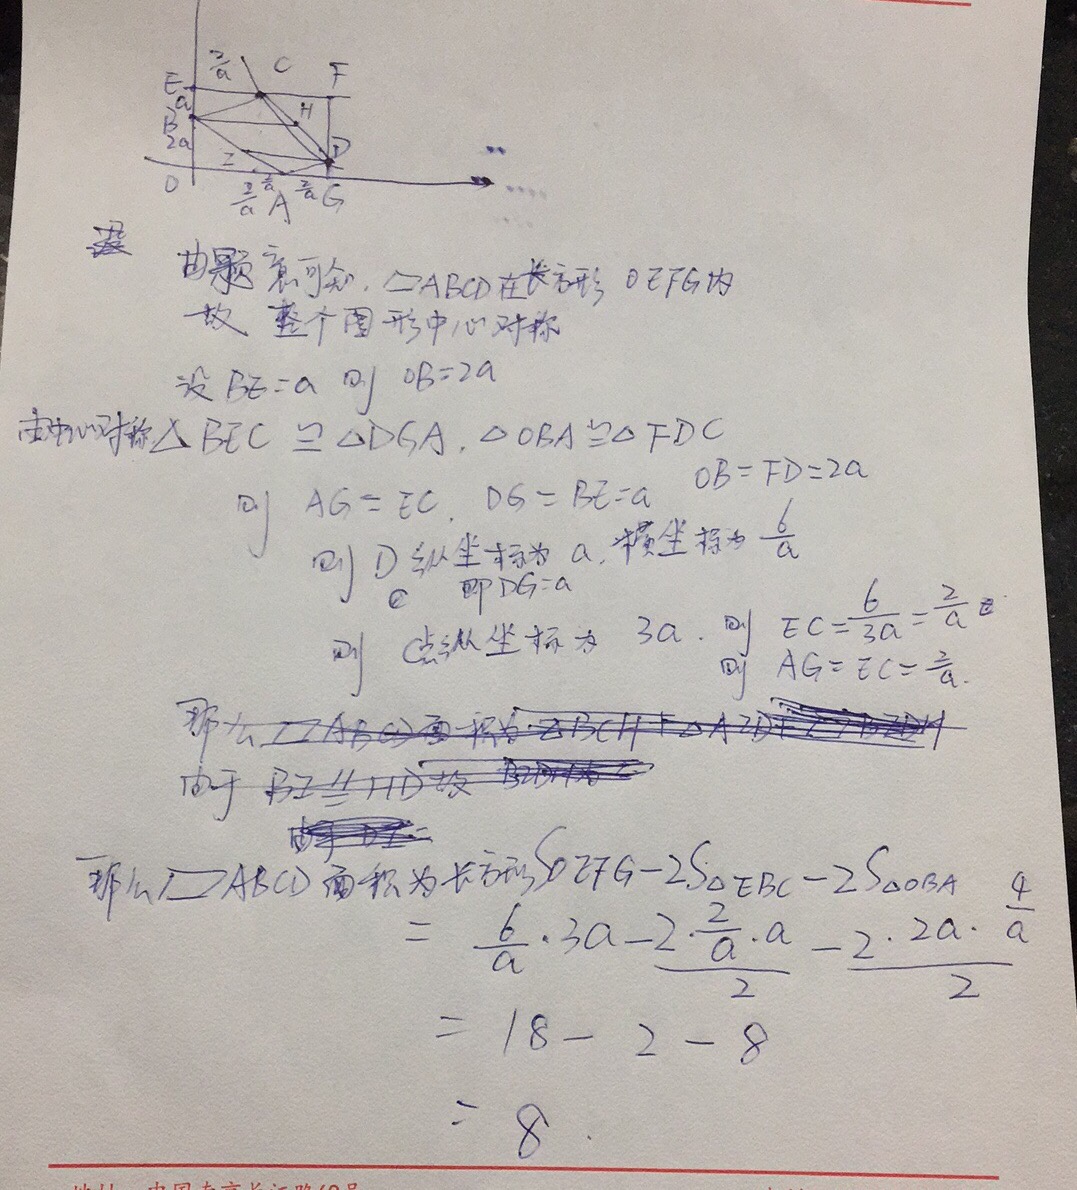 2/a C F
E
a
B H
2a
Z D
O 2/a 2/a A 2/a G
由题意可知, ▱ABCD在长方形 OEFG内
故 整个图形中心对称
设 BE=a 则 OB=2a
由中心对称△BEC ≌ △DGA, △OBA≌△FDC
则 AG=EC, DG=BE=a OB=FD=2a
则 D 纵坐标为 a, 横坐标为 6/a
即DG=a
则 C点纵坐标为 3a. 则 EC=6/3a=2/a
则 AG=EC=2/a.
那么
由于
那么▱ABCD面积为长方形S OEFG-2S△EBC-2S△OBA
= 6/a·3a - 2·2/a·a/2 - 2·2a·4/a/2
= 18 - 2 - 8
= 8.